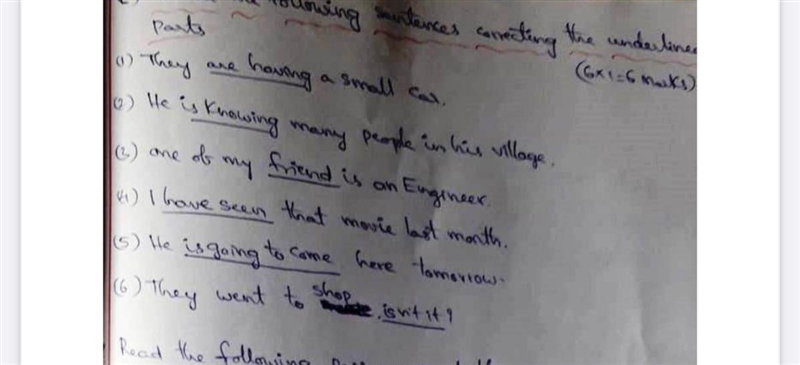 following sentences correcting the underlined
parts
(6x1=6 marks)
(1) They are having a small car.
(2) He is knowing many people in his village.
(3) one of my friend is an Engineer.
(4) I have seen that movie last month.
(5) He is going to come here tomorrow.
(6) They went to shop, isn't it?
Read the following